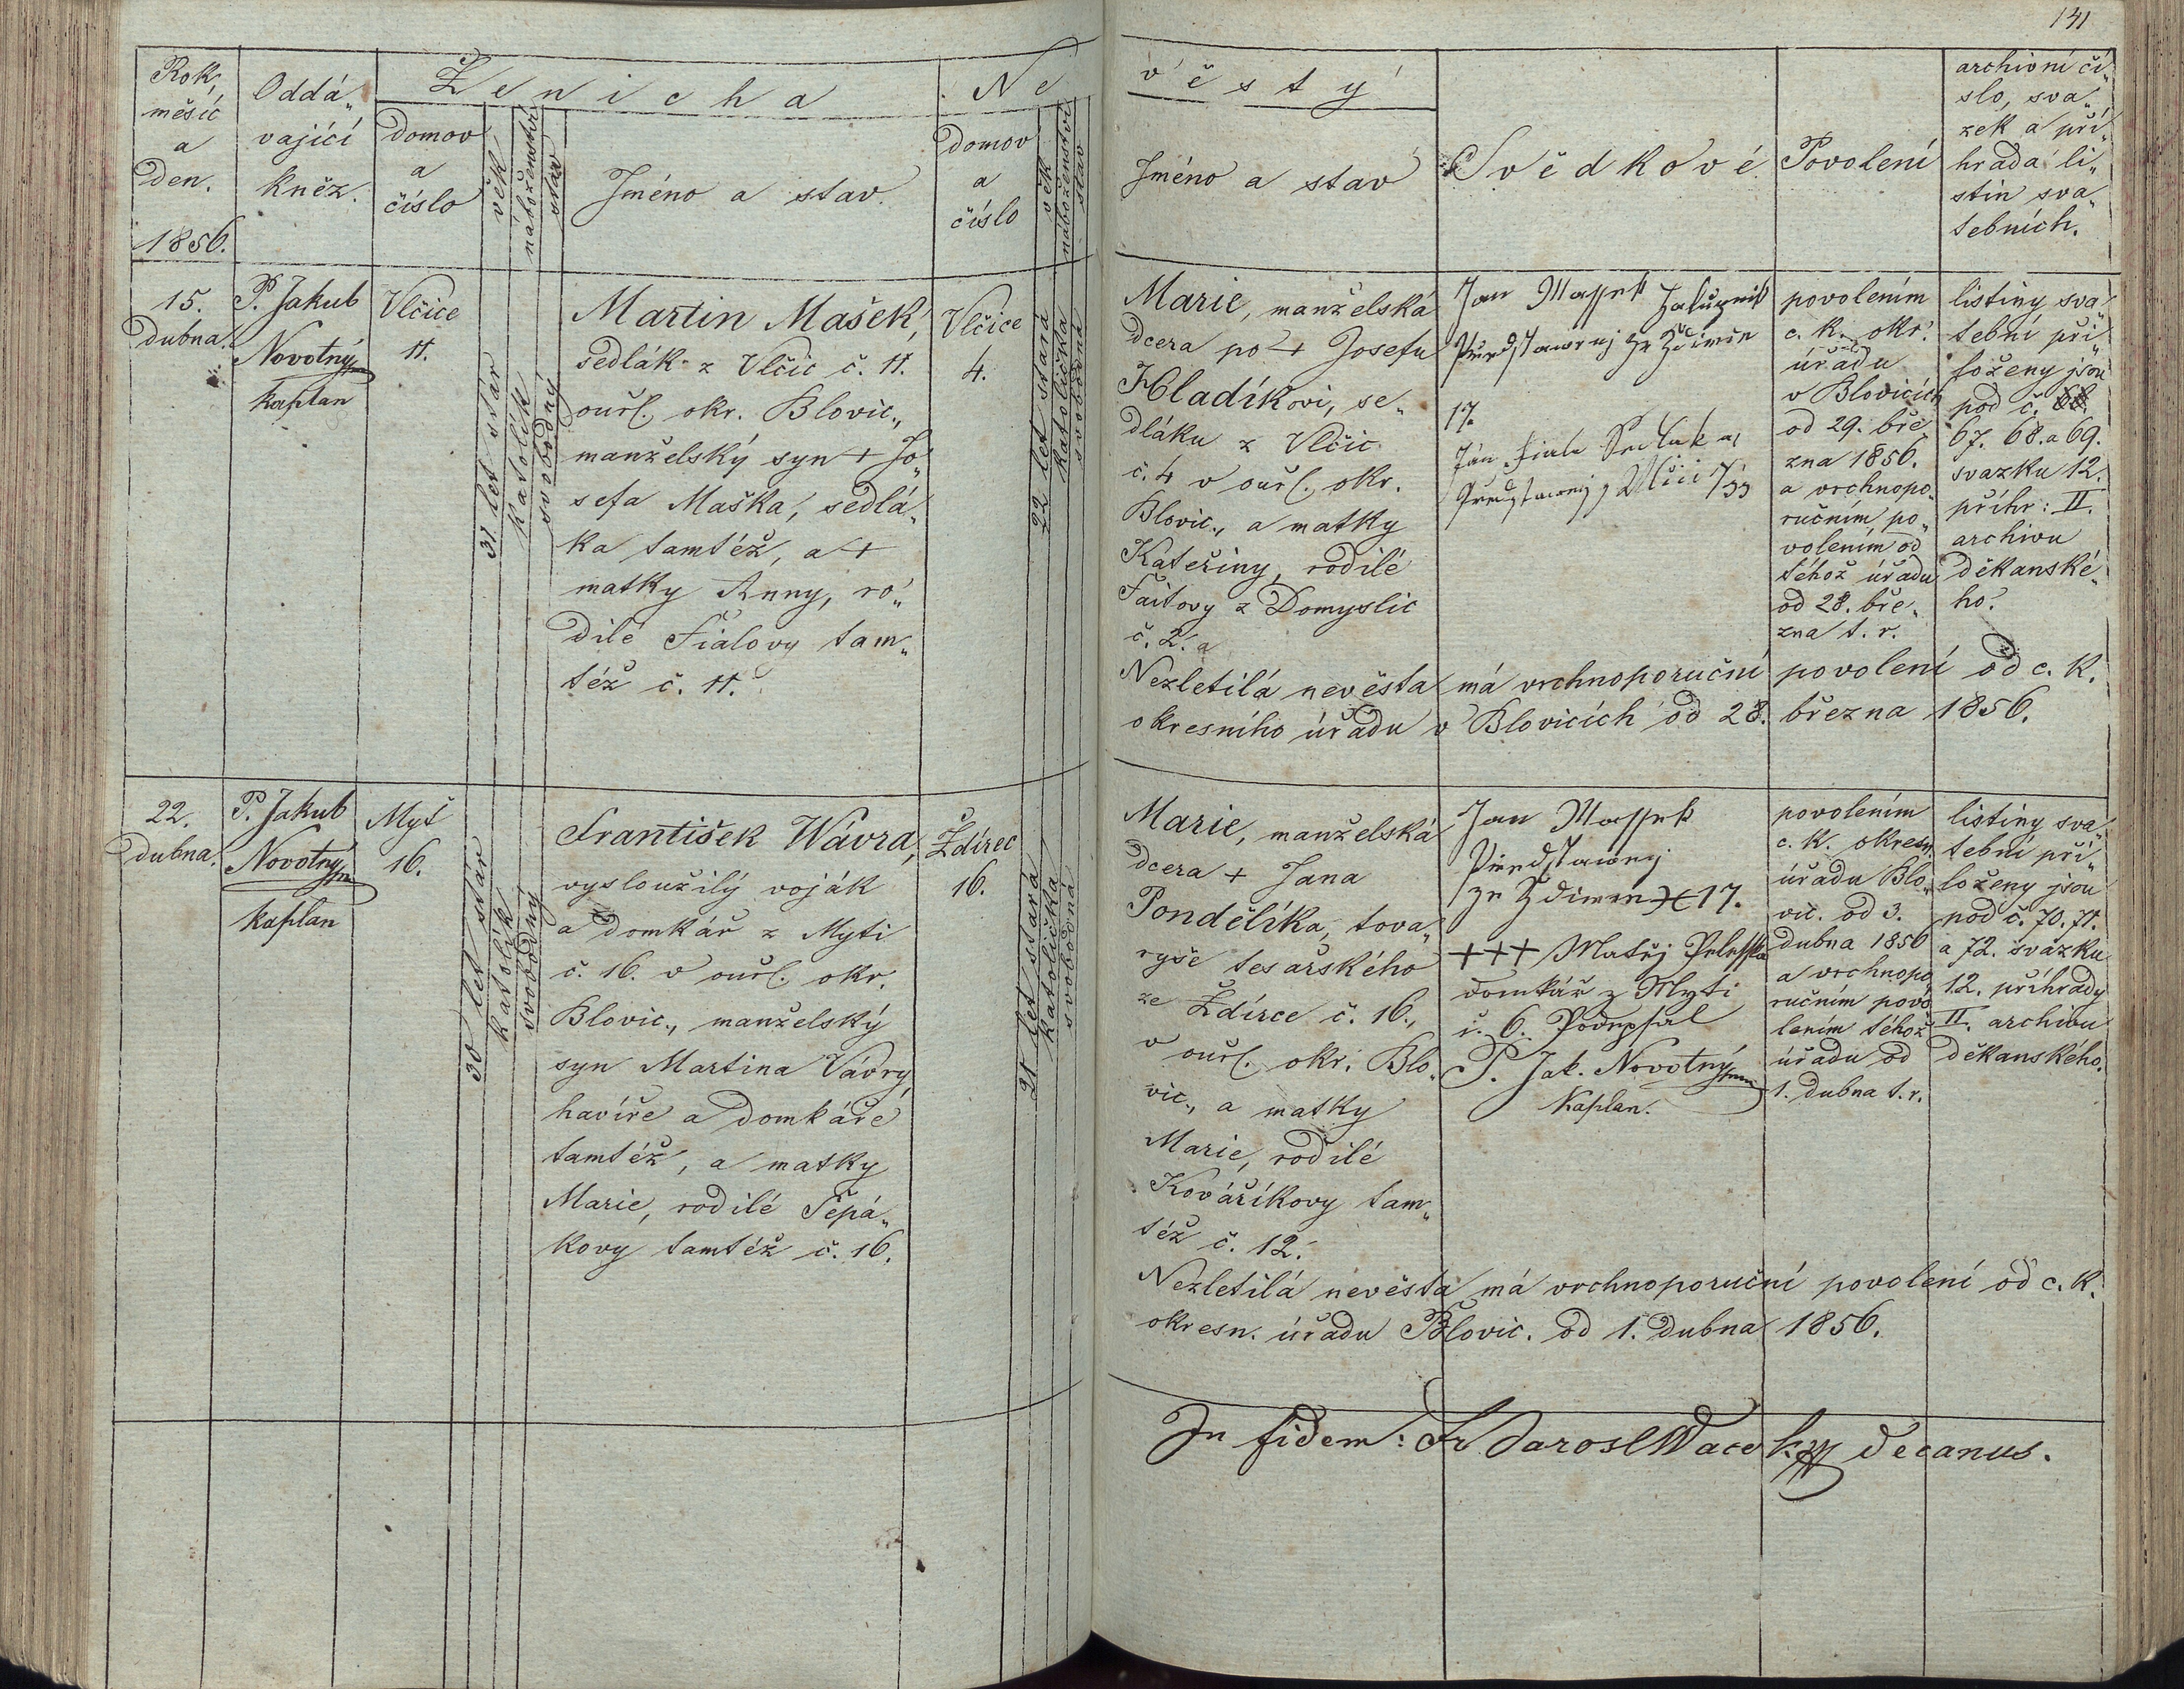 141
Rok,
měsíc
a
den.
1856.
Oddá„
vající
kněz.
Ženicha
domov
a
číslo
věk
náboženství
stav
Jméno a stav.
Ne
domov
a
číslo
věk
náboženství
stav
věsty
Jméno a stav
Svědkové
Povolení
archivní čí„
slo, sva„
zek a při„
hrada li„
stin sva„
tebních.
15.
dubna.
P. Jakub
Novotný
kaplan
Vlčice
11.
31 let stár
katolík
svobodný
Martin Mašek,
sedlák z Vlčic č. 11.
ouřl. okr. Blovic.,
manželský syn + Jo„
sefa Maška, sedlá„
ka tamtéž, a +
matky Anny, ro„
dilé Fialovy tam„
též č. 11.
Vlčice
4.
22 let stará
katolička
svobodná
Marie, manželská
dcera po + Josefu
Hladíkovi, se„
dláku z Vlčic
č. 4 v ouřl. okr.
Blovic., a matky
Kateřiny, rodilé
Faitovy z Domyslic
č. 2.
Jan Massek
17.
Ján Fiala
povolením
c. k. okr.
úřadu
v Blovicích
od 29. bře„
zna 1856.
a vrchnopo„
ručním po„
volením od
téhož úřadu
od 28. bře„
zna t. r.
listiny sva„
tební při„
loženy jsou
pod č.
67. 68. a 69.
svazku 12.
příhr: II.
archivu
děkanské„
ho.
Nezletilá nevěsta má vrchnoporuční povolení od c. k.
okresního úřadu v Blovicích od 28. března 1856.
22.
dubna.
P. Jakub
Novotný
kaplan
Myť
16.
30 let stár
katolík
svobodný
František Wávra,
vysloužilý voják
a domkář z Myti
č. 16. v ouřl. okr.
Blovic., manželský
syn Martina Vávry,
havíře a domkáře
tamtéž, a matky
Marie, rodilé Šepá„
kovy tamtéž č. 16.
Ždírec
16.
21 let stará
katolička
svobodná
Marie, manželská
dcera + Jana
Pondělíka, tova„
ryše tesařského
ze Ždírce č. 16.,
v ouřl. okr. Blo„
vic., a matky
Marie, rodilé
Kováříkovy tam„
též č. 12.
Jan Massek
17.
+++ Matěj
domkář z Myti
č. 6. Podepsal
P. Jak. Novotný
Kaplan.
povolením
c. k. okresn.
úřadu Blo„
vic. od 3.
dubna 1856
a vrchnopo„
ručním povo„
lením téhož
úřadu od
1. dubna t. r.
listiny sva„
tební při„
loženy jsou
pod č. 70. 71.
a 72. svazku
12. příhrady
II. archivu
děkanského.
Nezletilá nevěsta má vrchnoporuční povolení od c. k.
okresn. úřadu Blovic. od 1. dubna 1856.
In fidem: Fr. Jarosl Wacek decanus.